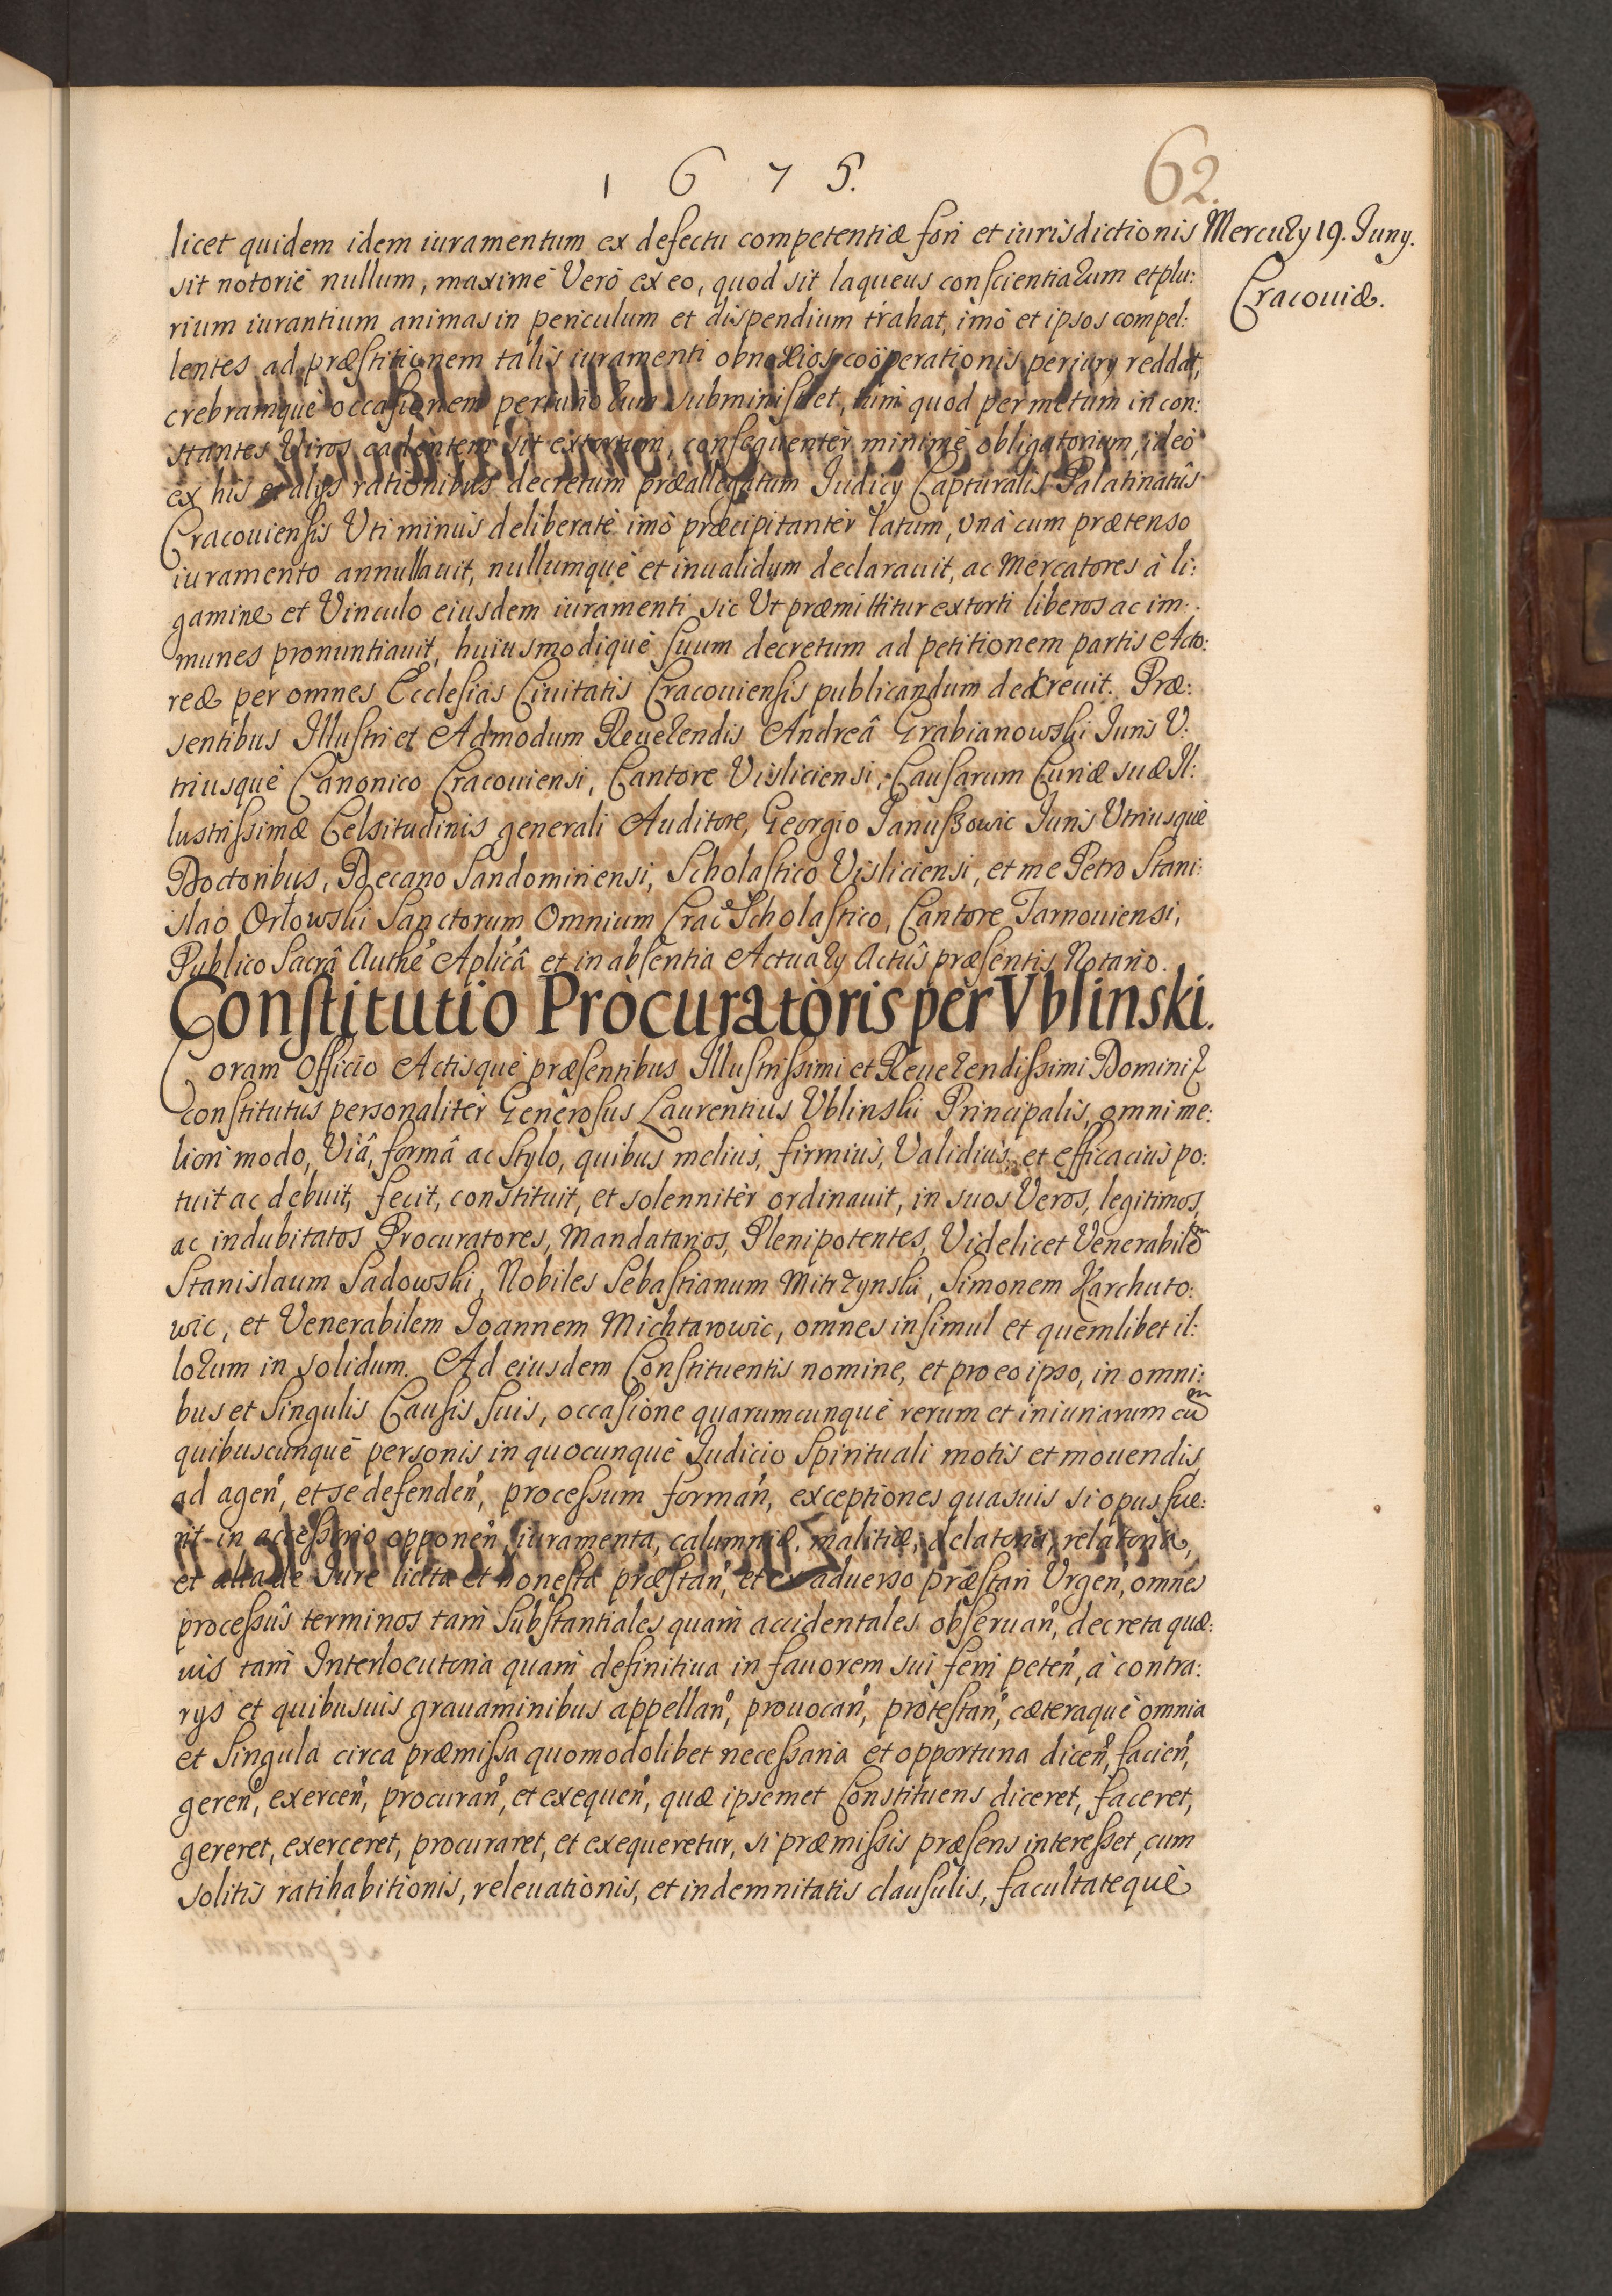 1675.
62.
Mercury 19. Juny.
Cracouiæ.
licet quidem idem iuramentum ex defectu competentiæ fori et iurisdictionis
sit notoriè nullum, maximè Verò ex eo, quod sit laqueus conscientiarum et plu:
rium iurantium animas in periculum et dispendium trahat, imò et ipsos compel:
lentes ad præstitionem talis iuramenti obnoxios coöperationis periurÿ reddat,
crebramquè occasionem periuriorum subministret, tum quod per metum in con:
stantes Viros cadentem sit extortum, consequentèr minimè obligatorium, ideò
ex his et alÿs rationibus decretum præallegatum Judicÿ Capturalis Palatinatûs
Cracouiensis Uti minùs deliberatè imò præcipitantèr latum, unà cum prætenso
iuramento annullauit, nullumquè et inualidum declarauit, ac Mercatores à li:
gamine et Vinculo eiusdem iuramenti sic Ut præmittitur extorti liberos ac im:
munes pronuntiauit, huiusmodiquè suum decretum ad petitionem partis Acto:
reæ per omnes Ecclesias Ciuitatis Cracouiensis publicandum decreuit. Præ:
sentibus Illustri et Admodum Reuerendis Andreâ Grabianowski Juris U:
triusquè Canonico Cracouiensi, Cantore Visliciensi, Causarum Curiæ suæ Il:
lustrissimæ Celsitudinis generali Auditore, Georgio Januszowic Juris Utriusquè
Doctoribus, Decano Sandomiriensi, Scholastico Visliciensi, et me Petro Stani:
slao Orłowski Sanctorum Omnium Crac Scholastico, Cantore Tarnouiensi,
Publico Sacrâ Authe Aplicâ et in absentia Actuarÿ Actûs præsentis Notario.
Constitutio Procuratòris pèr Vblinski.
Coram Officio Actisquè præsentibus Illustrissimi et Reuerendissimi Domini
constitutus personalitèr Generosus Laurentius Vblinski Principalis, omni me:
liori modo, Viâ, formâ ac stylo, quibus meliùs, firmiùs, Validiùs, et efficaciùs po:
tuit ac debuit, fecit, constituit, et solennitèr ordinauit, in suos Veros, legitimos,
ac indubitatos Procuratores, Mandatarios, Plenipotentes, Videlicet Venerabilem
Stanislaum Sadowski, Nobiles Sebastianum Mitrzynski, Simonem Karchuto:
wic, et Venerabilem Joannem Michtarowic, omnes insimul et quemlibet il:
lorum in solidum. Ad eiusdem Constituentis nomine, et pro eo ipso, in omni:
bus et singulis Causis suis, occasione quarumcunquè rerum et iniuriarum cum
quibuscunquè personis in quocunquè Judicio Spirituali motis et mouendis,
ad agen, et se defenden, processum forman, exceptiones quasuis si opus fue:
rit in accessorio opponen, iuramenta, calumniæ, malitiæ, delatoria, relatoria,
et alia de Jure licita et honesta præstan, et ex aduerso præstari Urgen, omnes
processûs terminos tam substantiales quam accidentales obseruan, decreta quæ:
uis tam Interlocutoria quam definitiua in fauorem sui ferri peten, à contra:
rÿs et quibusuis grauaminibus appellan, prouocan, protestan, cæteraquè omnia
et singula circa præmissa quomodolibet necessaria et opportuna dicen, facien,
geren, exercen, procuran, et exequen, quæ ipsemet Constituens diceret, faceret,
gereret, exerceret, procuraret, et exequeretur, si præmissis præsens interesset, cum
solitis ratihabitionis, releuationis, et indemnitatis clausulis, facultatequè